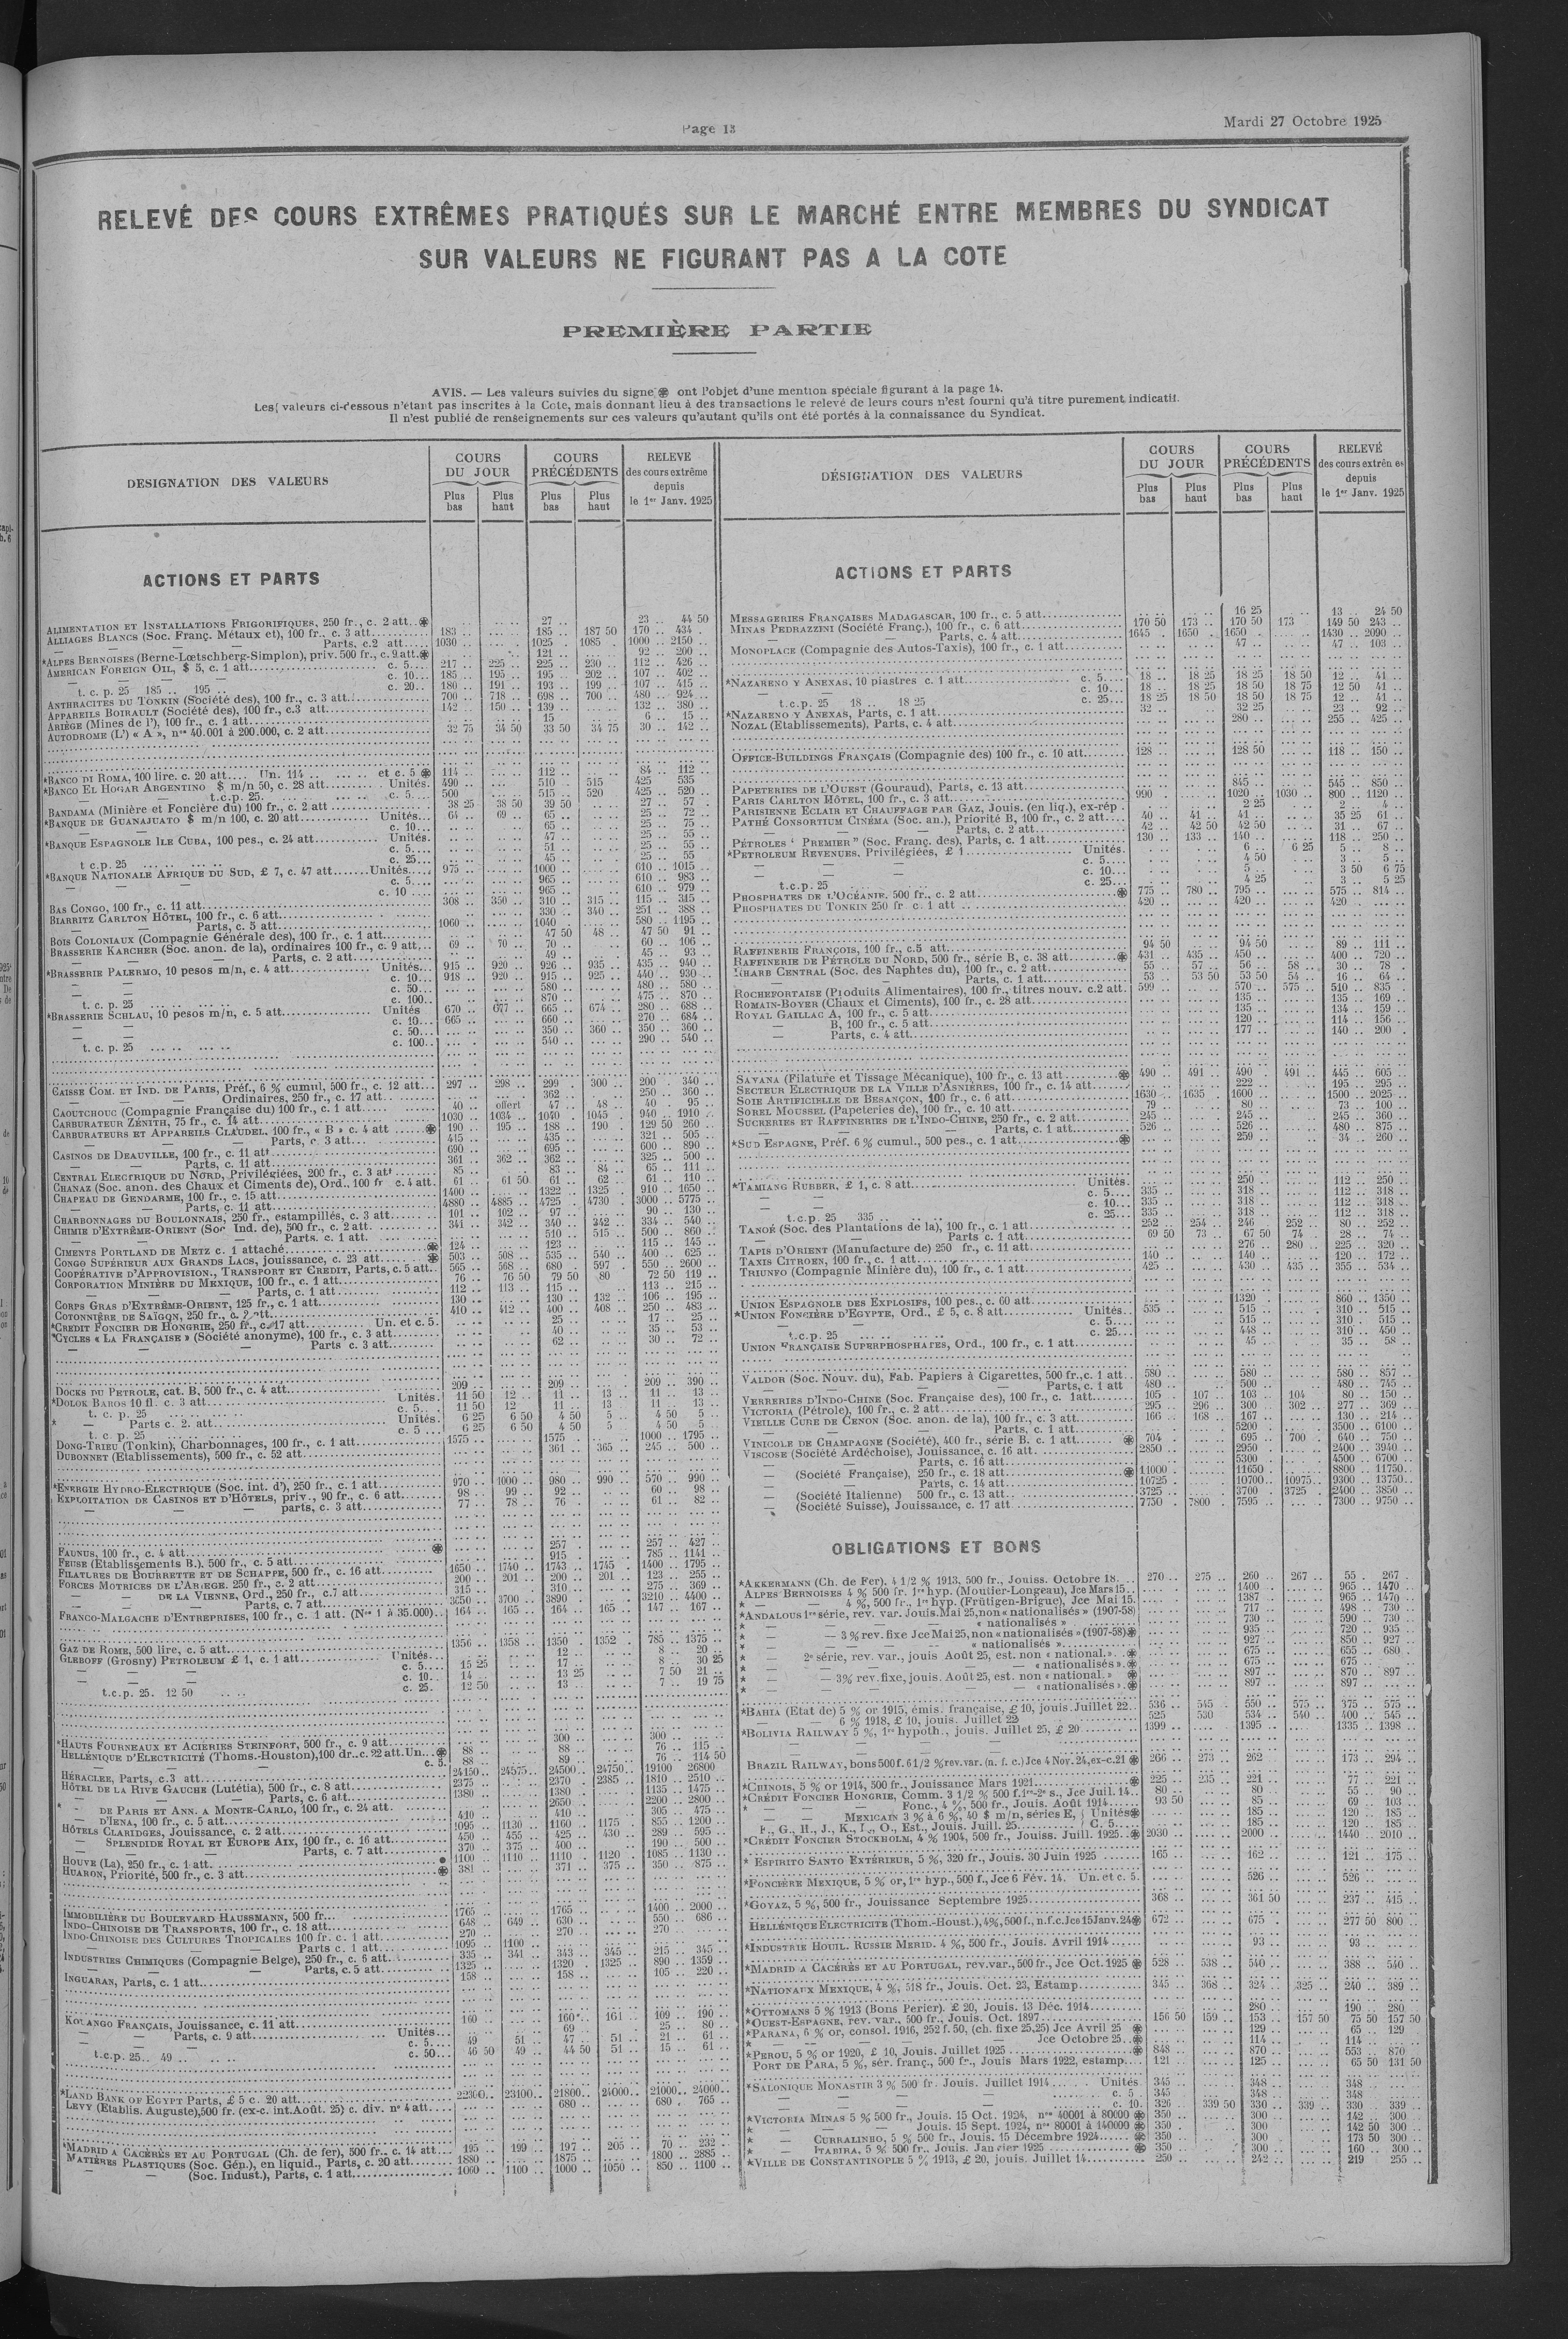 Page 13
Mardi 27 Octobre 1925
RELEVÉ DES COURS EXTRÊMES PRATIQUÉS SUR LE MARCHÉ ENTRE MEMBRES DU SYNDICAT
SUR VALEURS NE FIGURANT PAS A LA COTE
PREMIÈRE PARTIE
AVIS. — Les valeurs suivies du signe ont l'objet d'une mention spéciale figurant à la page 14.
Les valeurs ci-dessous n'étant pas inscrites à la Cote, mais donnant lieu à des transactions le relevé de leurs cours n'est fourni qu'à titre purement indicatif.
Il n'est publié de renseignements sur ces valeurs qu'autant qu'ils ont été portés à la connaissance du Syndicat.
DESIGNATION DES VALEURS
COURS DU JOUR
Plus bas
Plus haut
COURS PRÉCÉDENTS
Plus bas
Plus haut
RELEVE des cours extrême depuis le 1er Janv. 1925
ACTIONS ET PARTS
ALIMENTATION ET INSTALLATIONS FRIGORIFIQUES, 250 fr., c. 2 att. 27 .. 23 .. 44 50
ALLIAGES BLANCS (Soc. Franç. Métaux et), 100 fr., c. 3 att. 183 .. 185 .. 187 50 170 .. 434 .
— — — Parts, c.2 att. 1030 .. 1025 .. 1085 . 1000 .. 2150 ..
*ALPES BERNOISES (Berne-Lœtschberg-Simplon), priv. 500 fr., c. 9 att. 121 .. 92 .. 200 ..
AMERICAN FOREIGN OIL, $ 5, c. 1 att. c. 5 217 .. 225 .. 225 .. 230 .. 112 .. 426 ..
c. 10 185 .. 195 .. 195 .. 202 .. 107 .. 402 ..
t. c. p. 25 185 .. 195 .. c. 20 180 .. 191 .. 193 .. 199 .. 107 .. 415 ..
ANTHRACITES DU TONKIN (Société des), 100 fr., c. 3 att. 700 .. 718 .. 698 .. 700 .. 480 .. 924 ..
APPAREILS BOIRAULT (Société des), 100 fr., c.3 att. 142 .. 150 .. 139 .. 132 .. 380 ..
ARIÈGE (Mines de l'), 100 fr., c. 1 att. 15 .. 6 .. 15 ..
AUTODROME (L') « A », nos 40.001 à 200.000, c. 2 att. 32 75 34 50 33 50 34 75 30 .. 142 ..
*BANCO DI ROMA, 100 lire. c. 20 att. Un. 114 .. et c. 5 114 .. 112 .. 84 .. 112 ..
*BANCO EL HOGAR ARGENTINO $ m/n 50, c. 28 att. Unités. 490 .. 510 .. 515 425 535
— t.c.p. 25. c. 5 500 515 .. 520 425 .. 520 ..
BANDAMA (Minière et Foncière du) 100 fr., c. 2 att. 38 25 38 50 39 50 27 .. 57 ..
*BANQUE DE GUANAJUATO $ m/n 100, c. 20 att. Unités 64 .. 69 .. 65 .. 25 .. 72 ..
c. 10 65 .. 25 .. 75 ..
*BANQUE ESPAGNOLE ILE CUBA, 100 pes., c. 24 att. Unités. 47 .. 25 .. 55 ..
c. 5 51 .. 25 .. 55 ..
t c.p. 25 c. 25 45 .. 25 .. 55
*BANQUE NATIONALE AFRIQUE DU SUD, £ 7, c. 47 att. Unités 975 .. 1000 .. 610 .. 1015 ..
c. 5 965 .. 610 .. 983 ..
c. 10 965 .. 610 .. 979 ..
BAS CONGO, 100 fr., c. 11 att. 308 .. 350 .. 310 .. 315 .. 115 .. 315 ..
BIARRITZ CARLTON HÔTEL, 100 fr., c. 6 att. 330 .. 340 .. 251 .. 388 ..
— — Parts, c. 5 att. 1060 .. 1040 .. 580 .. 1195 ..
BOIS COLONIAUX (Compagnie Générale des), 100 fr., c. 1 att. 47 50 48 .. 47 50 91 ..
BRASSERIE KARCHER (Soc. anon. de la), ordinaires 100 fr., c. 9 att. 69 .. 70 .. 70 .. 60 .. 106 ..
— — Parts, c. 2 att. 49 .. 45 .. 93 ..
*BRASSERIE PALERMO, 10 pesos m/n, c. 4 att. Unités 915 .. 920 .. 926 .. 935 .. 435 .. 940 ..
c. 10 918 .. 920 .. 915 .. 925 .. 440 .. 930 ..
c. 50 580 .. 480 .. 580 ..
t. c. p. 25 c. 100 870 .. 475 .. 870 ..
*BRASSERIE SCHLAU, 10 pesos m/n, c. 5 att. Unités 670 .. 677 .. 665 .. 674 .. 280 .. 688 ..
c. 10 665 .. 660 .. 270 .. 684 ..
c. 50 350 .. 360 .. 350 .. 360 ..
t. c. p. 25 c. 100 540 .. 290 .. 540 ..
CAISSE COM. ET IND. DE PARIS, Préf., 6 % cumul, 500 fr., c. 12 att. 297 .. 298 .. 299 .. 300 .. 200 .. 340 ..
— — Ordinaires, 250 fr., c. 17 att. 362 .. 250 .. 360 ..
CAOUTCHOUC (Compagnie Française du) 100 fr., c. 1 att. 40 .. offert 47 .. 48 .. 40 .. 95 ..
CARBURATEUR ZÉNITH, 75 fr., c. 14 att. 1030 .. 1034 .. 1040 .. 1045 .. 940 .. 1910 ..
CARBURATEURS ET APPAREILS CLAUDEL, 100 fr., « B » c. 4 att 190 .. 195 .. 188 .. 190 .. 129 50 260
— — Parts, c. 3 att. 415 .. 435 .. 321 .. 505 ..
CASINOS DE DEAUVILLE, 100 fr., c. 11 att 690 .. 695 .. 600 .. 890 ..
— — Parts, c. 11 att. 361 .. 362 .. 362 .. 325 .. 500 ..
CENTRAL ELECTRIQUE DU NORD, Privilégiées, 200 fr., c. 3 att 85 .. 83 .. 84 .. 65 .. 111 ..
CHANAZ (Soc. anon. des Chaux et Ciments de), Ord., 100 fr c. 4 att. 61 .. 61 50 61 .. 62 .. 61 .. 110 ..
CHAPEAU DE GENDARME, 100 fr., c. 15 att. 1400 .. 1322 .. 1325 .. 910 .. 1650 ..
— — Parts, c. 11 att. 4880 .. 4885 .. 4725 .. 4730 .. 3000 .. 5775 ..
CHARBONNAGES DU BOULONNAIS, 250 fr., estampillés, c. 3 att. 101 .. 102 .. 97 .. 90 .. 130 ..
CHIMIE D'EXTRÊME-ORIENT (Soc Ind. de), 500 fr., c. 2 att. 341 .. 342 .. 340 .. 342 .. 334 .. 540 ..
— — Parts. c. 1 att. 510 .. 515 .. 500 .. 860 ..
CIMENTS PORTLAND DE METZ c. 1 attaché 124 .. 123 .. 115 .. 145 ..
CONGO SUPÉRIEUR AUX GRANDS LACS, jouissance, c. 23 att. 503 .. 508 .. 535 .. 540 .. 400 .. 625 ..
COOPÉRATIVE D'APPROVISION., TRANSPORT ET CREDIT, Parts, c. 5 att. 565 .. 568 .. 680 .. 597 .. 550 .. 2600 ..
CORPORATION MINIÈRE DU MEXIQUE, 100 fr., c. 1 att. 76 .. 76 50 79 50 80 72 50 119 ..
— — Parts, c. 1 att. 112 .. 113 .. 115 .. 113 .. 215 ..
CORPS GRAS D'EXTRÊME-ORIENT, 125 fr., c. 1 att. 130 .. 130 .. 132 .. 106 .. 195 ..
COTONNIÈRE DE SAIGON, 250 fr., c. 2 att. 410 .. 412 .. 400 .. 408 .. 250 .. 483 ..
*CREDIT FONCIER DE HONGRIE, 250 fr., c. 17 att. Un. et c. 5. 25 .. 17 .. 25 ..
*CYCLES « LA FRANÇAISE » (Société anonyme), 100 fr., c. 3 att. 40 .. 35 .. 53 ..
— — Parts c. 3 att. 62 .. 30 .. 72 ..
DOCKS DU PETROLE, cat. B, 500 fr., c. 4 att. 209 .. 209 .. 209 .. 390 ..
*DOLOK BAROS 10 fl. c. 3 att. Unités. 11 50 12 .. 11 .. 13 11 .. 13 ..
t. c. p. 25 c. 5 11 50 12 11 .. 13 11 .. 13 ..
* — Parts c. 2. att. Unités. 6 25 6 50 4 50 5 4 50 5 ..
t. c. p. 25 c. 5 6 25 6 50 4 50 5 4 50 5 ..
DONG-TRIEU (Tonkin), Charbonnages, 100 fr., c. 1 att. 1575 .. 1575 .. 1000 .. 1795 ..
DUBONNET (Etablissements), 500 fr., c. 52 att. 361 .. 365 .. 245 .. 500 ..
*ENERGIE HYDRO-ELECTRIQUE (Soc. int. d'), 250 fr., c. 1 att. 970 .. 1000 .. 980 .. 990 .. 570 .. 990 ..
EXPLOITATION DE CASINOS ET D'HÔTELS, priv., 90 fr., c. 6 att. 98 .. 99 .. 92 .. 60 .. 98 ..
— — parts, c. 3 att. 77 .. 78 .. 76 .. 61 .. 82 ..
FAUNUS, 100 fr., c. 4 att. 257 .. 257 .. 427 ..
FEUSE (Etablissements B.), 500 fr., c. 5 att. 915 .. 785 .. 1141 ..
FILATURES DE BOURRETTE ET DE SCHAPPE, 500 fr., c. 16 att. 1650 .. 1740 .. 1743 .. 1745 .. 1400 .. 1795 ..
FORCES MOTRICES DE L'ARIEGE. 250 fr., c. 2 att. 200 .. 201 .. 200 .. 201 .. 123 .. 255 ..
— DE LA VIENNE, Ord., 250 fr., c.7 att. 315 .. 310 .. 275 .. 369 ..
— — Parts, c. 7 att. 3650 .. 3700 .. 3890 .. 3210 .. 4400 ..
FRANCO-MALGACHE D'ENTREPRISES, 100 fr., c. 1 att. (Nos 1 à 35.000) 164 .. 165 .. 164 .. 165 .. 147 .. 167 ..
GAZ DE ROME, 500 lire, c. 5 att. 1356 .. 1358 .. 1350 .. 1352 .. 785 .. 1375 ..
GLEBOFF (Grosny) PETROLEUM £ 1, c. 1 att. Unités 12 .. 8 .. 20 ..
c. 5 15 25 17 .. 8 .. 30 25
c. 10 14 .. 13 25 7 50 21 ..
t.c.p. 25. 12 50 c. 25. 12 50 13 .. 7 .. 19 75
*HAUTS FOURNEAUX ET ACIERIES STEINFORT, 500 fr., c. 9 att. 300 .. 300 ..
HELLÉNIQUE D'ELECTRICITÉ (Thoms.-Houston),100 dr..c. 22 att. Un. 88 .. 88 .. 76 .. 115 ..
c. 5. 88 .. 89 .. 76 .. 114 50
HÉRACLEE, Parts, c.3 att. 24150 .. 24575 .. 24500 .. 24750 .. 19100 26800
HÔTEL DE LA RIVE GAUCHE (Lutétia), 500 fr., c. 8 att. 2375 .. 2370 2385 .. 1810 .. 2510 ..
— — Parts, c. 6 att. 1380 .. 1380 .. 1135 .. 1475 ..
* DE PARIS ET ANN. A MONTE-CARLO, 100 fr., c. 24 att. 2650 .. 2200 .. 2800 ..
D'IENA, 100 fr., c. 5 att. 410 .. 410 .. 305 .. 475 ..
HÔTELS CLARIDGES, Jouissance, c. 2 att. 1095 .. 1130 .. 1160 1175 .. 855 .. 1200 ..
— SPLENDIDE ROYAL ET EUROPE AIX, 100 fr., c. 16 att. 450 .. 455 .. 425 .. 430 .. 289 .. 595 ..
— — Parts, c. 7 att. 370 .. 375 .. 400 .. 190 .. 500 ..
HOUVE (La), 250 fr., c. 1 att. 1100 .. 1110 .. 1110 .. 1120 .. 1085 .. 1130 ..
HUARON, Priorité, 500 fr., c. 3 att. 381 .. 371 .. 375 .. 350 .. 875 ..
IMMOBILIÈRE DU BOULEVARD HAUSSMANN, 500 fr. 1765 .. 1765 .. 1400 .. 2000 ..
INDO-CHINOISE DE TRANSPORTS, 100 fr., c. 18 att. 648 649 .. 630 .. 550 686 ..
INDO-CHINOISE DES CULTURES TROPICALES 100 fr. c. 1 att. 270 .. 270 .. 270
— — Parts c. 1 att. 1095 1100 ..
INDUSTRIES CHIMIQUES (Compagnie Belge), 250 fr., c. 6 att. 335 .. 341 .. 343 .. 345 .. 215 .. 345 ..
— — Parts, c. 5 att. 1325 .. 1320 1325 .. 890 .. 1359 ..
INGUARAN, Parts, c. 1 att. 158 .. 158 .. 105 .. 220 ..
KOUANGO FRANÇAIS, Jouissance, c. 11 att. 160 .. 160 .. 161 .. 109 .. 190 ..
— — Parts, c. 9 att. Unités 69 .. 25 .. 80 ..
c. 5 49 51 .. 47 .. 51 .. 21 .. 61 ..
t.c.p. 25 49 c. 50 46 50 49 .. 44 50 51 .. 15 .. 61 ..
*LAND BANK OF EGYPT Parts, £ 5 c. 20 att. 22300 .. 23100 .. 21800 .. 24000 .. 21000 .. 24000 ..
LEVY (Etablis. Auguste),500 fr. (ex-c. int.Août. 25) c. div. n° 4 att. 680 .. 680 .. 765 ..
*MADRID A CACÉRÈS ET AU PORTUGAL (Ch. de fer), 500 fr., c. 14 att. 195 .. 199 .. 197 .. 205 .. 70 .. 232 ..
MATIÈRES PLASTIQUES (Soc. Gén.), en liquid., Parts, c. 20 att. 1880 .. 1875 .. 1800 .. 2885 ..
— (Soc. Indust.), Parts, c. 1 att. 1000 .. 1100 .. 1000 .. 1050 .. 850 .. 1100 ..
DÉSIGNATION DES VALEURS
COURS DU JOUR
Plus bas
Plus haut
COURS PRÉCÉDENTS
Plus bas
Plus haut
RELEVÉ des cours extrên es depuis le 1er Janv. 1925
ACTIONS ET PARTS
MESSAGERIES FRANÇAISES MADAGASCAR, 100 fr., c. 5 att. 16 25 13 .. 24 50
MINAS PEDRAZZINI (Société Franç.), 100 fr., c. 6 att. 170 50 173 .. 170 50 173 149 50 243 ..
— — Parts, c. 4 att. 1645 1650 .. 1650 .. 1430 .. 2090 ..
MONOPLACE (Compagnie des Autos-Taxis), 100 fr., c. 1 att. 47 .. 47 .. 103 ..
*NAZARENO Y ANEXAS, 10 piastres c. 1 att. c. 5 18 .. 18 25 18 25 18 50 12 .. 41 ..
c. 10 18 .. 18 25 18 50 18 75 12 50 41 ..
t.c.p. 25 18 .. 18 25 c. 25 18 25 18 50 18 50 18 75 12 .. 41 ..
*NAZARENO Y ANEXAS, Parts, c. 1 att. 32 .. 32 25 23 .. 92 ..
NOZAL (Etablissements), Parts, c. 4 att. 280 .. 255 .. 425 ..
OFFICE-BUILDINGS FRANÇAIS (Compagnie des) 100 fr., c. 10 att. 128 128 50 118 .. 150 ..
PAPETERIES DE L'OUEST (Gouraud), Parts, c. 13 att. 845 .. 545 .. 850 ..
PARIS CARLTON HÔTEL, 100 fr., c. 3 att. 990 .. 1020 .. 1030 .. 800 .. 1120 ..
PARISIENNE ECLAIR ET CHAUFFAGE PAR GAZ, Jouis. (en liq.), ex-rép. 2 25 2 .. 4 ..
PATHÉ CONSORTIUM CINÉMA (Soc. an.), Priorité B, 100 fr., c. 2 att. 40 .. 41 .. 41 .. 35 25 61 ..
— — Parts, c. 2 att. 42 .. 42 50 42 50 31 .. 67 ..
PÉTROLES ' PREMIER " (Soc. Franç. des), Parts, c. 1 att. 130 .. 133 .. 140 .. 118 .. 250 ..
*PETROLEUM REVENUES. Privilégiées, £ 1 Unités. 6 .. 6 25 5 .. 8 ..
c. 5 4 50 3 .. 5 ..
c. 10 5 .. 3 50 6 75
t.c.p. 25 c. 25 4 25 3 .. 5 25
PHOSPHATES DE L'OCÉANIE, 500 fr., c. 2 att. 775 .. 780 .. 795 .. 575 .. 814 ..
PHOSPHATES DU TONKIN 250 fr. c. 1 att 420 .. 420 .. 420 ..
RAFFINERIE FRANÇOIS, 100 fr., c.5 att. 94 50 94 50 89 .. 111 ..
RAFFINERIE DE PÉTROLE DU NORD, 500 fr., série B, c. 38 att. 431 .. 435 .. 450 .. 400 .. 720 ..
RHARB CENTRAL (Soc. des Naphtes du), 100 fr., c. 2 att. 55 .. 57 .. 56 .. 58 .. 30 .. 78 ..
— — Parts, c. 1 att. 53 53 50 53 50 54 .. 16 .. 64 ..
ROCHEFORTAISE (Produits Alimentaires), 100 fr., titres nouv. c.2 att. 599 .. 570 .. 575 .. 510 .. 835 ..
ROMAIN-BOYER (Chaux et Ciments), 100 fr., c. 28 att. 135 .. 135 .. 169 ..
ROYAL GAILLAC A, 100 fr., c. 5 att. 135 .. 134 .. 159 ..
— B, 100 fr., c. 5 att. 120 .. 114 .. 156 ..
— Parts, c. 4 att. 177 .. 140 .. 200 ..
SAVANA (Filature et Tissage Mécanique), 100 fr., c. 13 att. 490 .. 491 .. 490 .. 491 .. 445 .. 605 ..
SECTEUR ELECTRIQUE DE LA VILLE D'ASNIÈRES, 100 fr., c. 14 att. 222 .. 195 .. 295 ..
SOIE ARTIFICIELLE DE BESANÇON, 100 fr., c. 6 att. 1630 .. 1635 1600 .. 1500 .. 2025 ..
SOREL MOUSSEL (Papeteries de), 100 fr., c. 10 att. 79 .. 80 .. 73 .. 100 ..
SUCRERIES ET RAFFINERIES DE L'INDO-CHINE, 250 fr., c. 2 att. 245 .. 245 .. 245 .. 360 ..
— — Parts, c. 1 att. 526 .. 526 .. 480 .. 875 ..
*SUD ESPAGNE, Préf. 6 % cumul., 500 pes., c. 1 att. 259 .. 34 .. 260 ..
*TAMIANG RUBBER, £ 1, c. 8 att. Unités. 250 .. 112 .. 250 ..
c. 5 335 .. 318 .. 112 .. 318 ..
c. 10 335 .. 318 .. 112 .. 318 ..
t.c.p. 25 335 .. c. 25 335 .. 318 .. 112 .. 318 ..
TANOÉ (Soc. des Plantations de la), 100 fr., c. 1 att. 252 .. 254 .. 246 .. 252 .. 80 .. 252 ..
— — Parts c. 1 att. 69 50 73 .. 67 50 74 28 .. 74 ..
TAPIS D'ORIENT (Manufacture de) 250 fr., c. 11 att. 276 .. 280 .. 225 .. 320 ..
TAXIS CITROEN, 100 fr., c. 1 att. 140 .. 140 .. 120 .. 172 ..
TRIUNFO (Compagnie Minière du), 100 fr., c. 1 att. 425 .. 430 .. 435 .. 355 .. 534 ..
UNION ESPAGNOLE DES EXPLOSIFS, 100 pes., c. 60 att. 1320 860 .. 1350 ..
*UNION FONCIÈRE D'EGYPTE, Ord., £ 5, c. 8 att. Unités. 535 .. 515 .. 310 .. 515 ..
c. 5 515 .. 310 .. 515 ..
t.c.p. 25 c. 25 448 .. 310 .. 450 ..
UNION FRANÇAISE SUPERPHOSPHATES, Ord., 100 fr., c. 1 att. 45 .. 35 .. 58 ..
VALDOR (Soc. Nouv. du), Fab. Papiers à Cigarettes, 500 fr., c. 1 att. 580 .. 580 .. 580 .. 857 ..
— — Parts, c. 1 att 480 .. 500 .. 480 .. 745 ..
VERRERIES D'INDO-CHINE (Soc. Française des), 100 fr., c. 1att. 105 .. 107 .. 103 .. 104 80 .. 150 ..
VICTORIA (Pétrole), 100 fr., c. 2 att. 295 .. 296 .. 300 .. 302 .. 277 .. 369 ..
VIEILLE CURE DE CENON (Soc. anon. de la), 100 fr., c. 3 att. 166 168 .. 167 .. 130 .. 214 ..
— — Parts, c. 1 att. 5200 .. 3500 .. 6100 ..
VINICOLE DE CHAMPAGNE (Société), 400 fr., série B. c. 1 att. 704 .. 695 .. 700 .. 640 .. 750 ..
VISCOSE (Société Ardéchoise), Jouissance, c. 16 att. 2850 .. 2950 .. 2400 .. 3940 ..
— — Parts, c. 16 att. 5300 4500 .. 6700 ..
— (Société Française), 250 fr., c. 18 att. 11000 .. 11650 .. 8800 .. 11750 ..
— — Parts, c. 14 att. 10725 .. 10700 .. 10975 .. 9300 .. 13750 ..
— (Société Italienne) 500 fr., c. 13 att. 3725 .. 3700 .. 3725 2400 .. 3850 ..
— (Société Suisse), Jouissance, c. 17 att. 7750 .. 7800 .. 7595 .. 7300 .. 9750 ..
OBLIGATIONS ET BONS
*AKKERMANN (Ch. de Fer). 4 1/2 % 1913, 500 fr., Jouiss. Octobre 18. 270 .. 275 .. 260 .. 267 .. 55 .. 267 ..
ALPES BERNOISES 4 % 500 fr. 1re hyp. (Moutier-Longeau), Jce Mars 15 1400 .. 965 .. 1470 ..
* — 4 %, 500 fr., 1re hyp. (Frütigen-Brigue), Jce Mai 15. 1387 965 .. 1470 ..
*ANDALOUS 1re série, rev. var. Jouis. Mai 25,non « nationalisés » (1907-58) 717 .. 498 .. 730 ..
* — — « nationalisés » 730 .. 590 .. 730 ..
* — 3 % rev. fixe Jce Mai 25, non « nationalisés » (1907-58) 935 .. 720 .. 935 ..
* — — « nationalisés » 927 .. 850 .. 927 ..
* — 2e série, rev. var., jouis Août 25, est. non « national. » 675 .. 655 .. 680 ..
* — — « nationalisés » 675 .. 675 ..
* — 3% rev. fixe, jouis. Août 25, est. non « national. » 897 .. 870 .. 897 ..
* — — « nationalisés » 897 .. 897 ..
*BAHIA (Etat de) 5 % or 1915, émis. française, £ 10, jouis. Juillet 22 536 .. 545 .. 550 .. 575 .. 375 .. 575 ..
— — 6 % 1918, £ 10, jouis. Juillet 22 525 530 534 .. 540 .. 400 .. 545 ..
*BOLIVIA RAILWAY 5 %, 1re hypoth., jouis. Juillet 25, £ 20 1399 .. 1395 .. 1335 .. 1398 ..
BRAZIL RAILWAY, bons 500 f. 6 1/2 % rev. var. (n. f. c.) Jce 4 Nov. 24, ex-c. 21 266 .. 273 .. 262 173 .. 294 ..
*CHINOIS, 5 % or 1914, 500 fr., Jouissance Mars 1921 225 .. 235 .. 221 .. 77 .. 221 ..
*CRÉDIT FONCIER HONGRIE, Comm. 3 1/2 % 500 f. 1re-2e s., Jce Juil. 14 80 .. 80 55 .. 90 ..
* — Fonc., 4 %, 500 fr., Jouis. Août 1914 93 50 85 .. 69 .. 103 ..
* — MEXICAIN 3 % à 6 %, 40 $ m/n, séries E, Unités 185 .. 120 .. 185 ..
F., G., H., J., K., L., O., Est., Jouis. Juill. 25 C. 5 185 .. 120 .. 185 ..
*CRÉDIT FONCIER STOCKHOLM, 4 % 1904, 500 fr., Jouiss. Juill. 1925 2030 .. 2000 .. 1440 .. 2010 ..
* ESPIRITO SANTO EXTÉRIEUR, 5 %, 320 fr., Jouis. 30 Juin 1925 165 .. 162 .. 121 .. 175 ..
*FONCIÈRE MEXIQUE, 5 % or, 1re hyp., 500 f., Jce 6 Fév. 14. Un. et c. 5. 526 .. 526 ..
*GOYAZ, 5 %, 500 fr., Jouissance Septembre 1925 368 .. 361 50 237 .. 415 ..
HELLÉNIQUE ELECTRICITE (Thom.-Houst.), 4%, 500 f., n.f.c. Jce 15 Janv. 24 672 .. 675 .. 277 50 800 ..
*INDUSTRIE HOUIL. RUSSIE MERID. 4 %, 500 fr., Jouis. Avril 1914 93 .. 93 ..
*MADRID A CACÉRÈS ET AU PORTUGAL, rev.var., 500 fr., Jce Oct. 1925 528 .. 538 .. 540 .. 388 .. 540 ..
*NATIONAUX MEXIQUE, 4 %, 518 fr., Jouis. Oct. 23, Estamp. 345 .. 368 .. 324 .. 325 .. 240 .. 389 ..
*OTTOMANS 5 % 1913 (Bons Perier). £ 20, Jouis. 13 Déc. 1914 280 .. 190 .. 280 ..
*OUEST-ESPAGNE, rev. var., 500 fr., Jouis. Oct. 1897 156 50 159 .. 153 .. 157 50 75 50 157 50
*PARANA, 6 % or, consol. 1916, 252 f. 50, (ch. fixe 25,25) Jce Avril 25 129 .. 65 .. 129 ..
* — — Jce Octobre 25 114 .. 114 ..
*PEROU, 5 % or 1920, £ 10, Jouis. Juillet 1925 848 .. 870 .. 553 .. 870 ..
PORT DE PARA, 5 %, sér. franç., 500 fr., Jouis Mars 1922, estamp. 121 .. 125 .. 65 50 131 50
*SALONIQUE MONASTIR 3 % 500 fr. Jouis. Juillet 1914 Unités 345 .. 348 .. 348 ..
c. 5 345 .. 348 .. 348
c. 10. 326 339 50 330 .. 339 .. 330 339 ..
*VICTORIA MINAS 5 % 500 fr., Jouis. 15 Oct. 1924, nos 40001 à 80000 350 .. 300 .. 142 .. 300 ..
* — Jouis. 15 Sept. 1924, nos 80001 à 140000 350 .. 300 142 50 300 ..
* — CURRALINHO, 5 % 500 fr., Jouis. 15 Décembre 1924 350 .. 300 .. 173 50 300 ..
* — ITABIRA, 5 % 500 fr., Jouis. Janvier 1925 350 .. 300 .. 160 .. 300 ..
*VILLE DE CONSTANTINOPLE 5 % 1913, £ 20, jouis. Juillet 14 250 .. 242 .. 219 255 ..